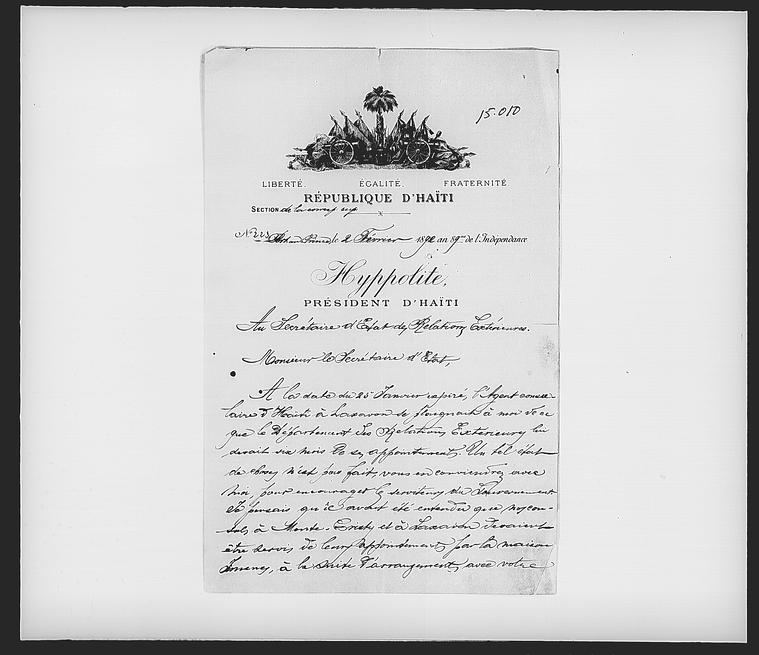 15.010
LIBERTÉ. ÉGALITÉ. FRATERNITÉ
RÉPUBLIQUE D'HAÏTI
SECTION de la corresp
Port-au-Prince, le 2 Février 1892 an 89me de l'Indépendance
Hyppolite,
PRÉSIDENT D'HAÏTI
Au Secrétaire d'Etat des Relations Extérieures.
Monsieur le Secrétaire d'Etat,
A la date du 25 Janvier expiré, l'Agent consu
laire d'Haïti à Laxavon se plaignait à moi de ce
que le Département des Relations Extérieures lui
devait six mois de ses appointements. Un tel état
de choses n'est pas fait, vous en conviendrez avec
moi, pour encourager les serviteurs du Gouvernement
Je pensais qu'il avait été entendu que nos con-
suls à Monte-Christy et à Laxavon devaient
être servis de leurs appointements par la maison
Jimenes, à la suite d'arrangements avec votre